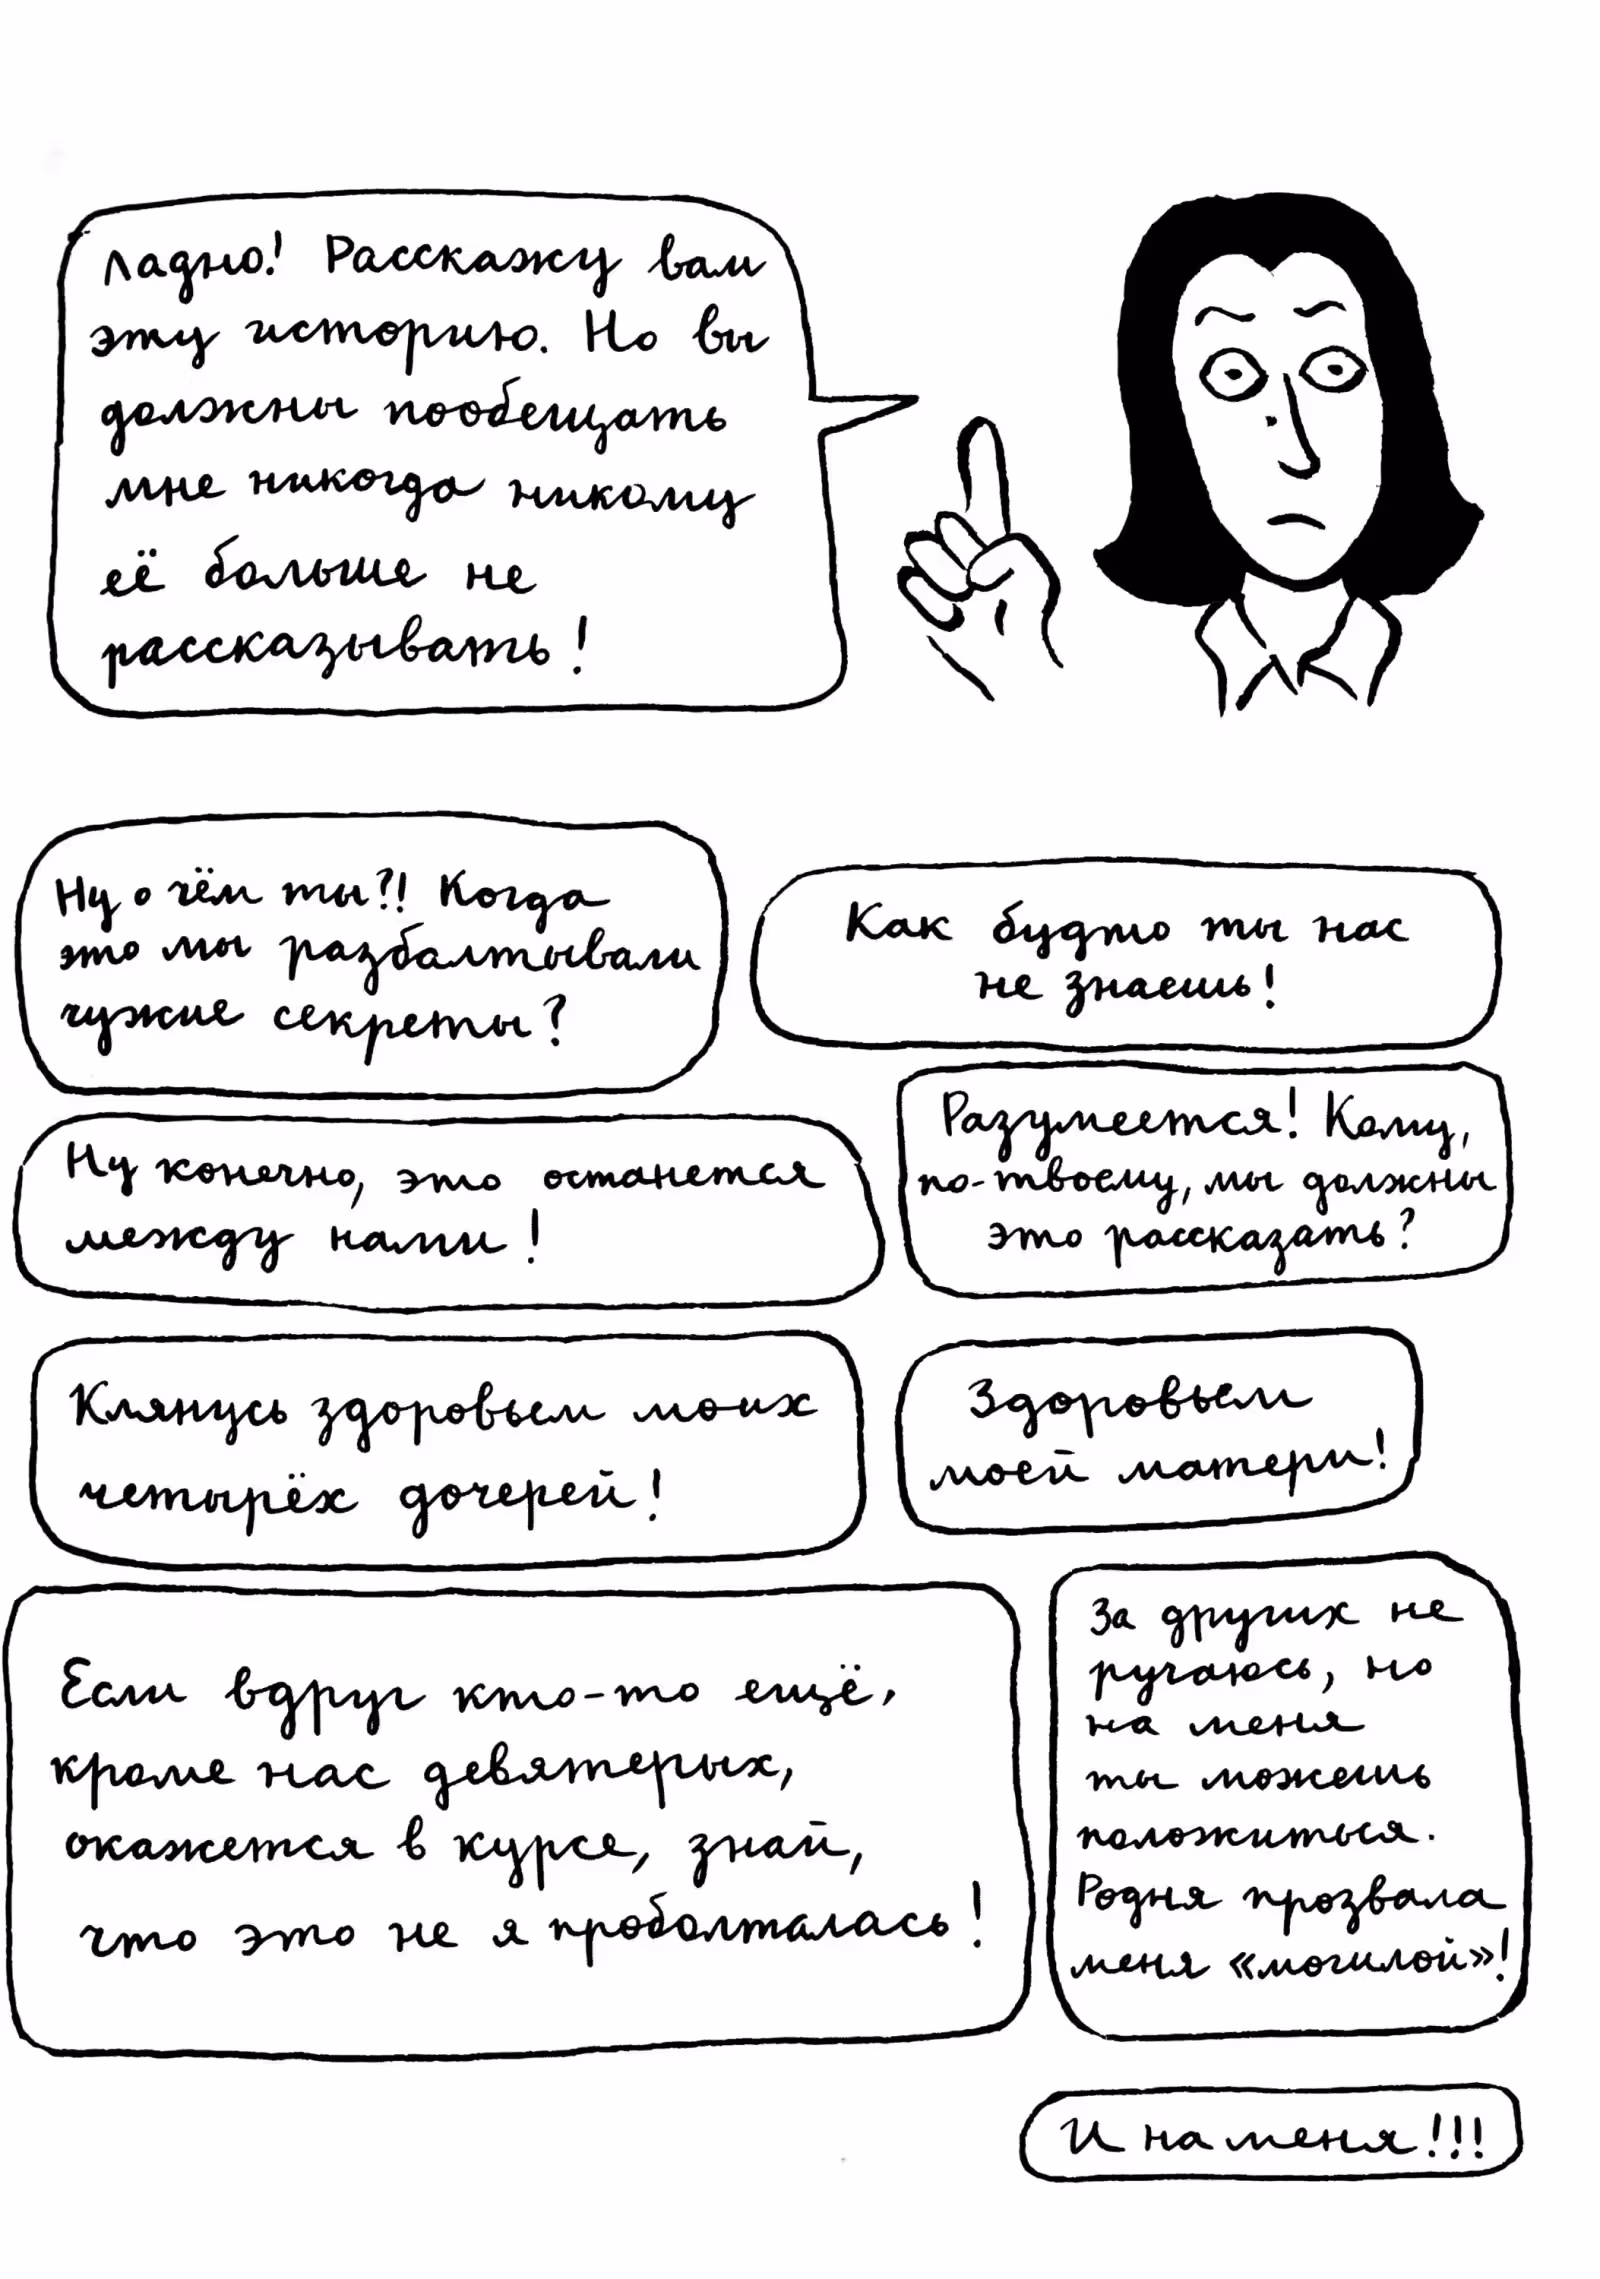 Ладно! Расскажу вам
эту историю. Но вы
должны пообещать
мне никогда никому
её больше не
рассказывать!
Ну о чём ты?! Когда
это мы разбалтывали
чужие секреты?
Как будто ты нас
не знаешь!
Ну конечно, это останется
между нами!
Разумеется! Кому,
по-твоему, мы должны
это рассказать?
Клянусь здоровьем моих
четырёх дочерей!
Здоровьем
моей матери!
Если вдруг кто-то ещё,
кроме нас девятерых,
окажется в курсе, знай,
что это не я проболталась!
За других не
ручаюсь, но
на меня
ты можешь
положиться.
Родня прозвала
меня «могилой»!
И на меня!!!